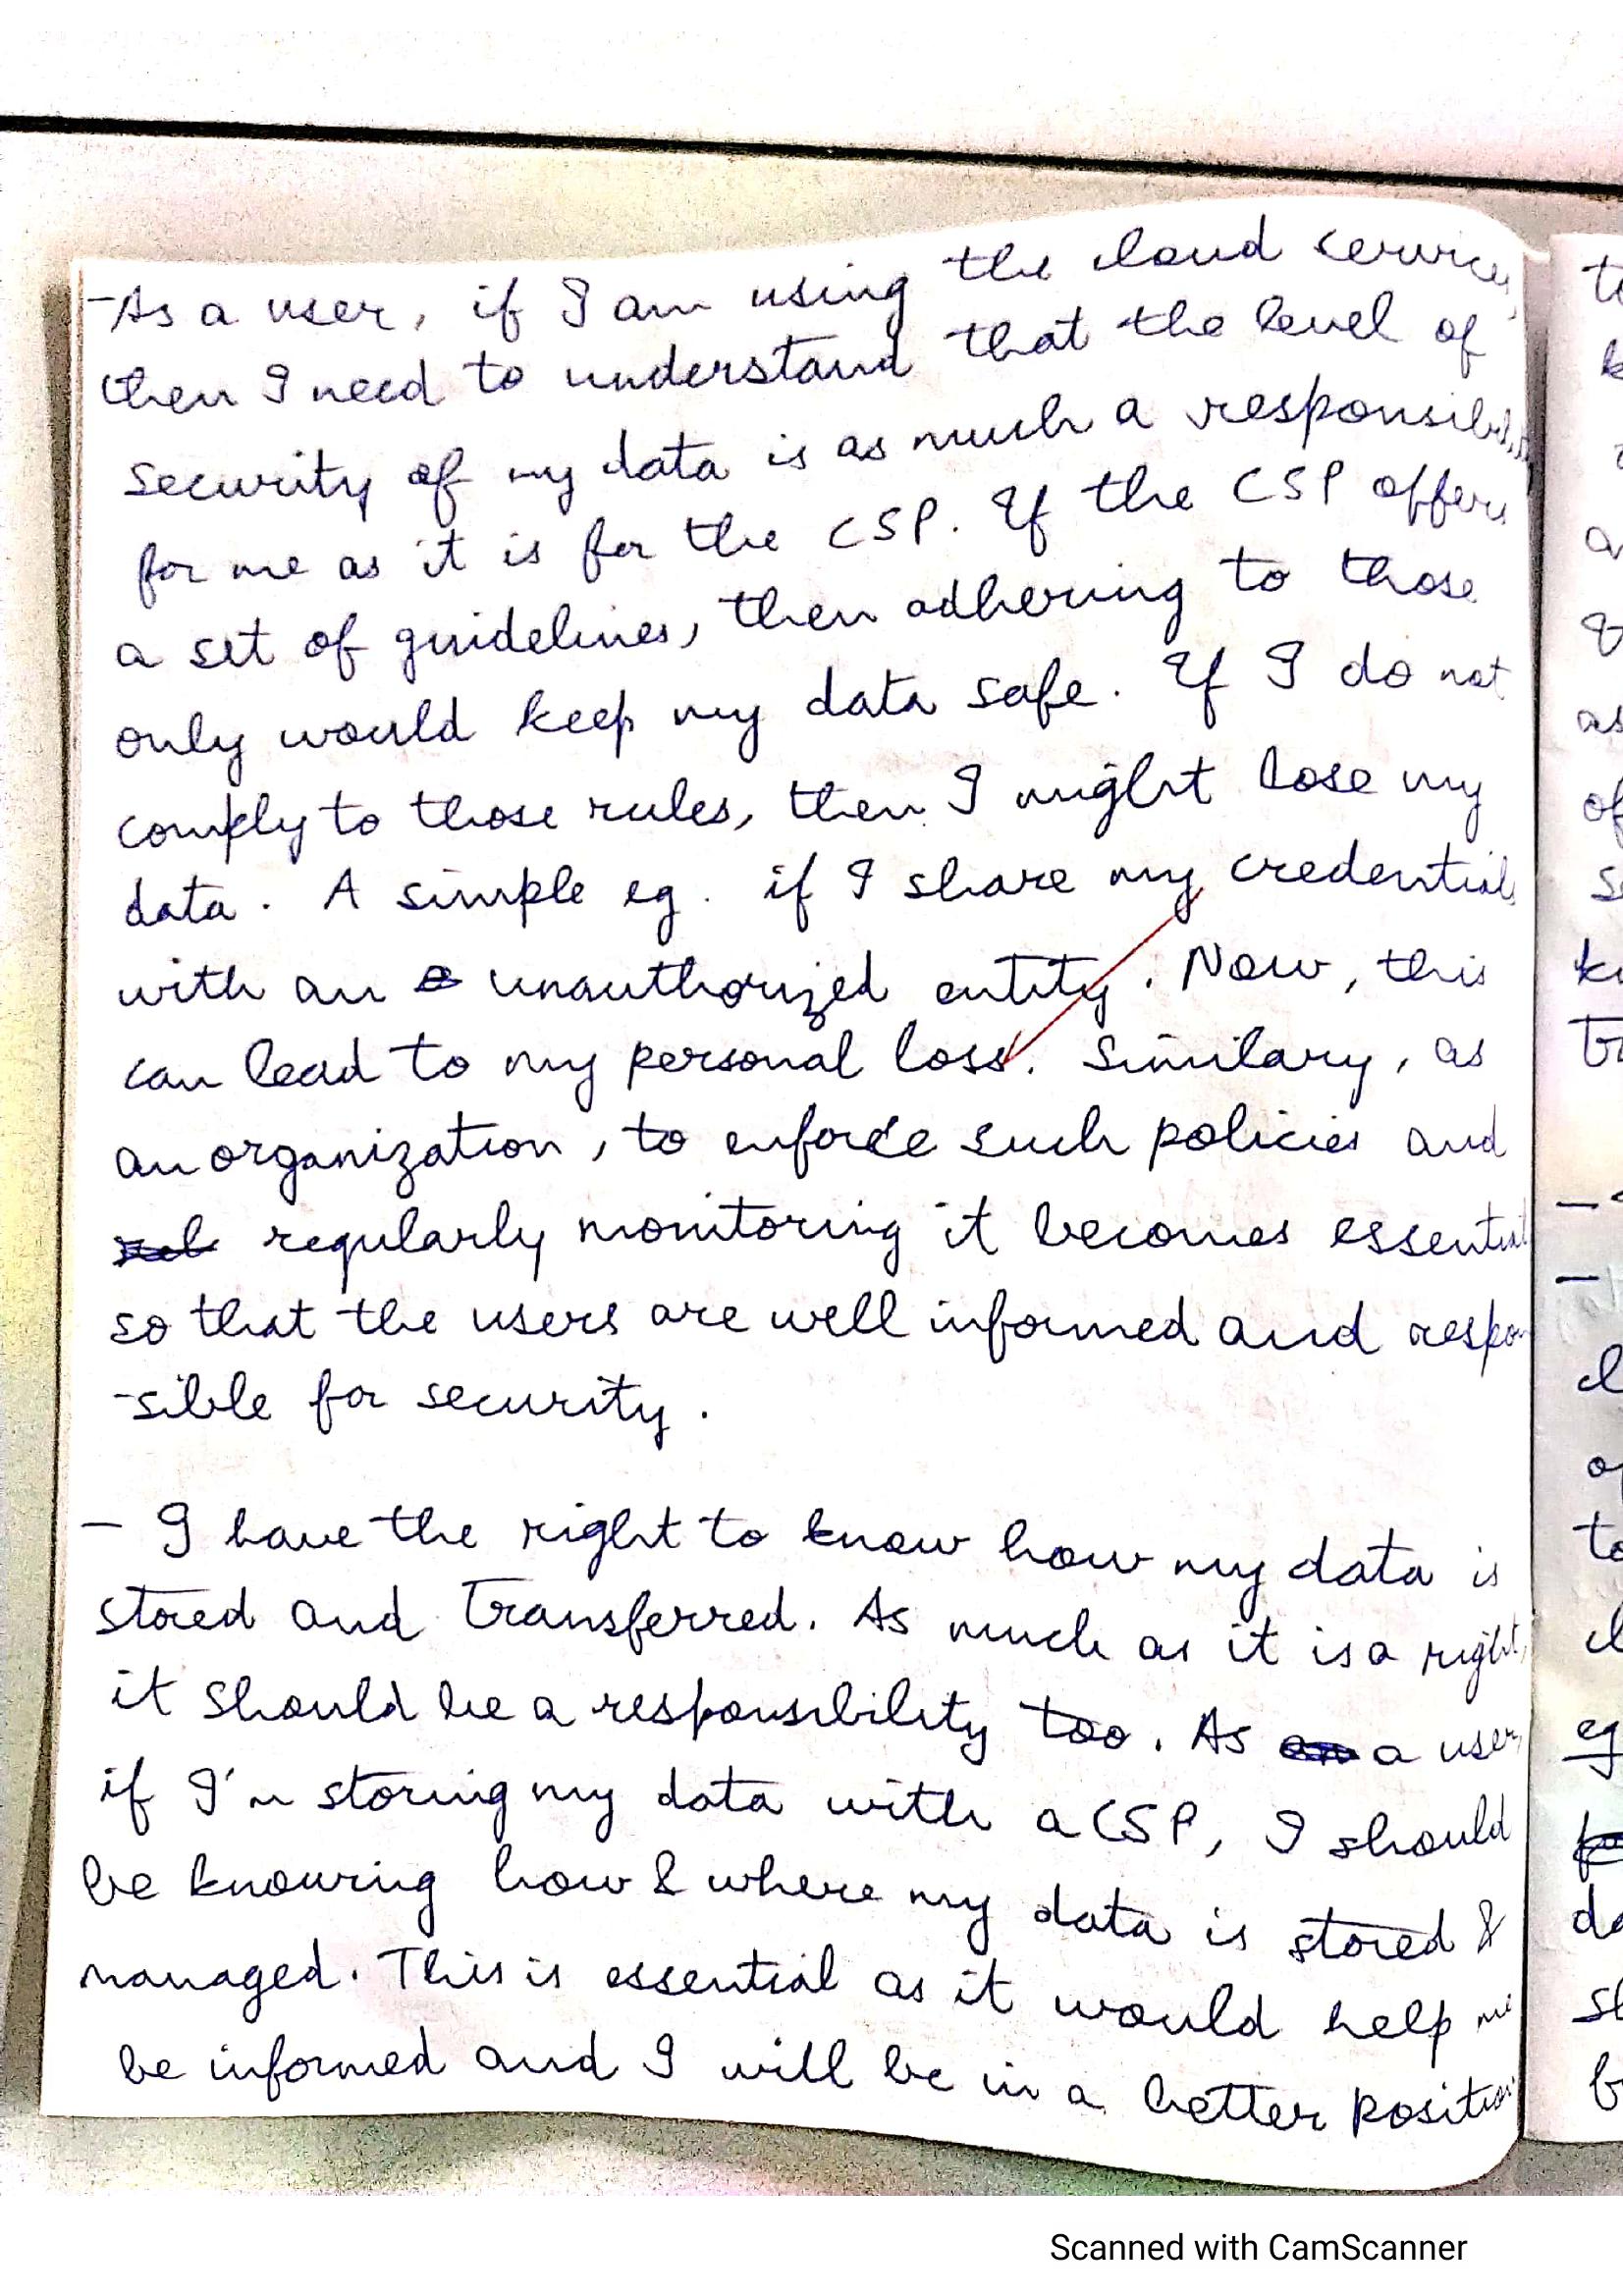 -As a user, if I am using the cloud services,
then I need to understand that the level of
security of my data is as much a responsibility
for me as it is for the CSP. If the CSP offers
a set of guidelines, then adhering to those
only would keep my data safe. If I do not
comply to those rules, then I might lose my
data. A simple eg. if I share my credentials
with an unauthorized entity. Now, this
can lead to my personal loss. Similary, as
an organization, to enforce such policies and
regularly monitoring it becomes essential
so that the users are well informed and respon
-sible for security.
- I have the right to know how my data is
stored and Transferred. As much as it is a right,
it should be a responsibility too. As a user,
if I'm storing my data with a CSP, I should
be knowing how & where my data is stored &
managed. This is essential as it would help me
be informed and I will be in a better position
Scanned with CamScanner